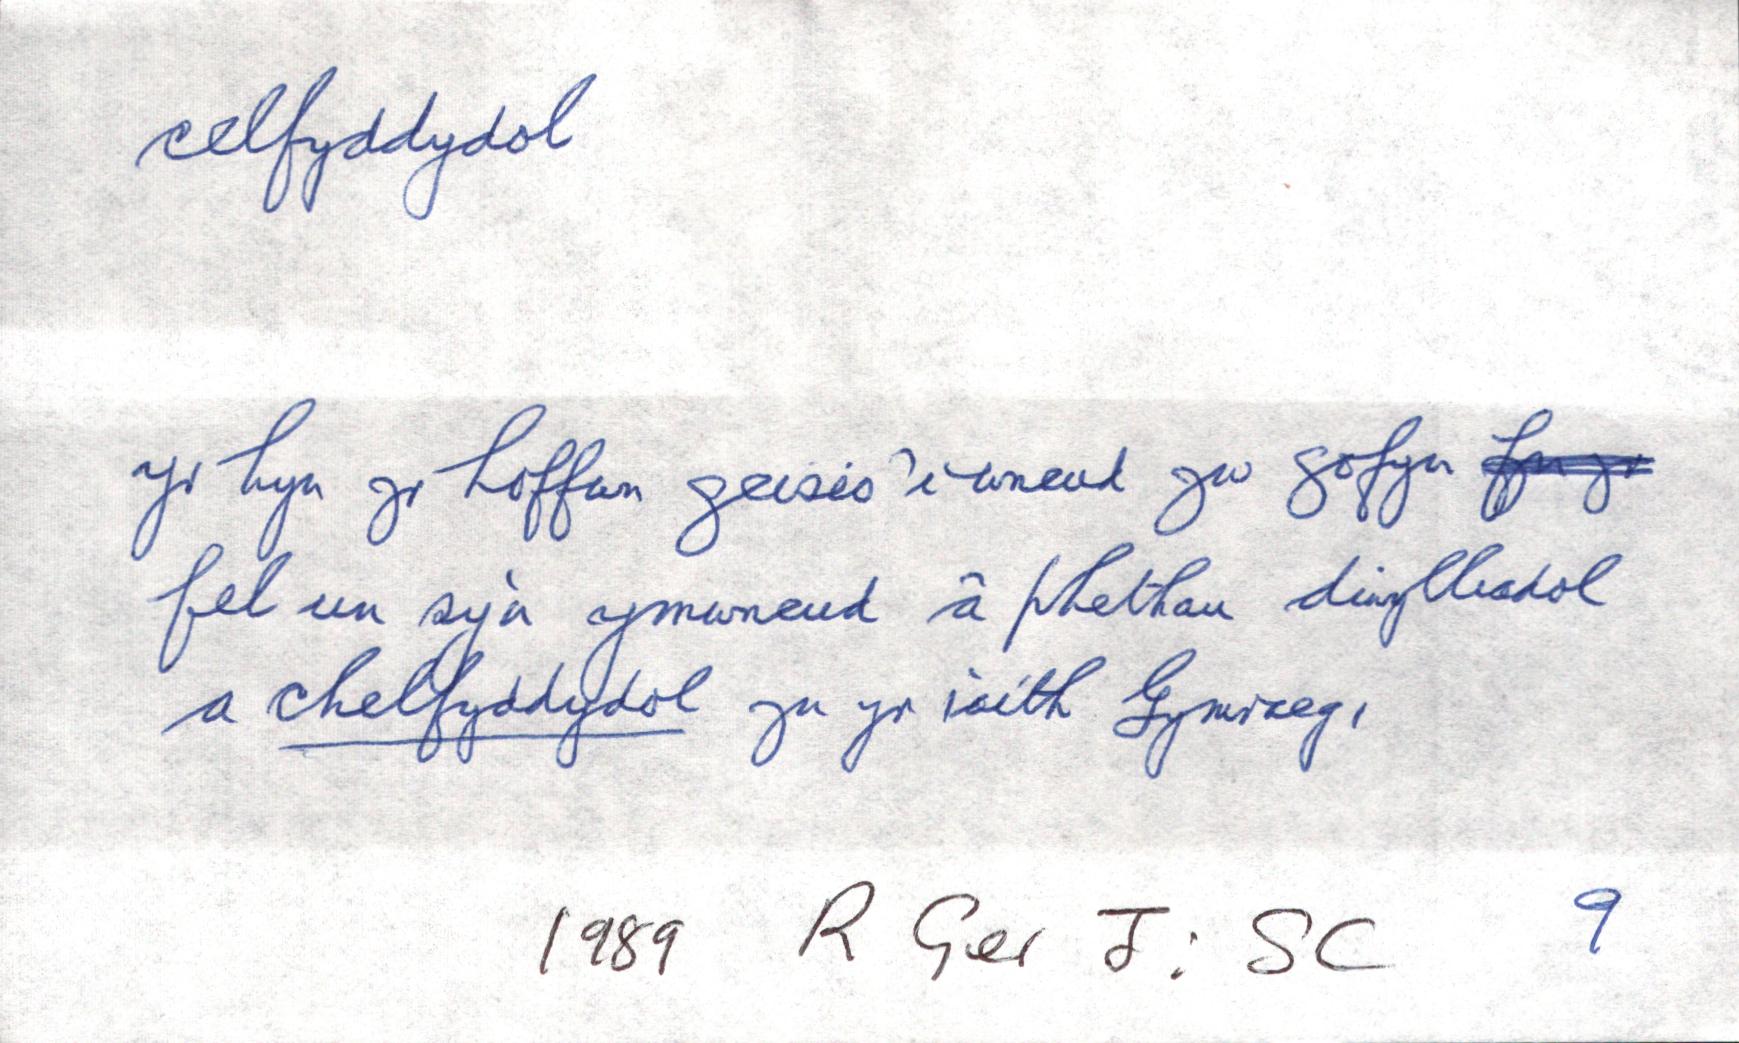 celfyddydol
yr hyn yr hoffwn geisio 'i wneud yw gofyn
fel un sy'n ymwneud â phethau diwylliadol
a chelfyddydol yn yr iaith Gymraeg,
1989 R Ger J: SC 9